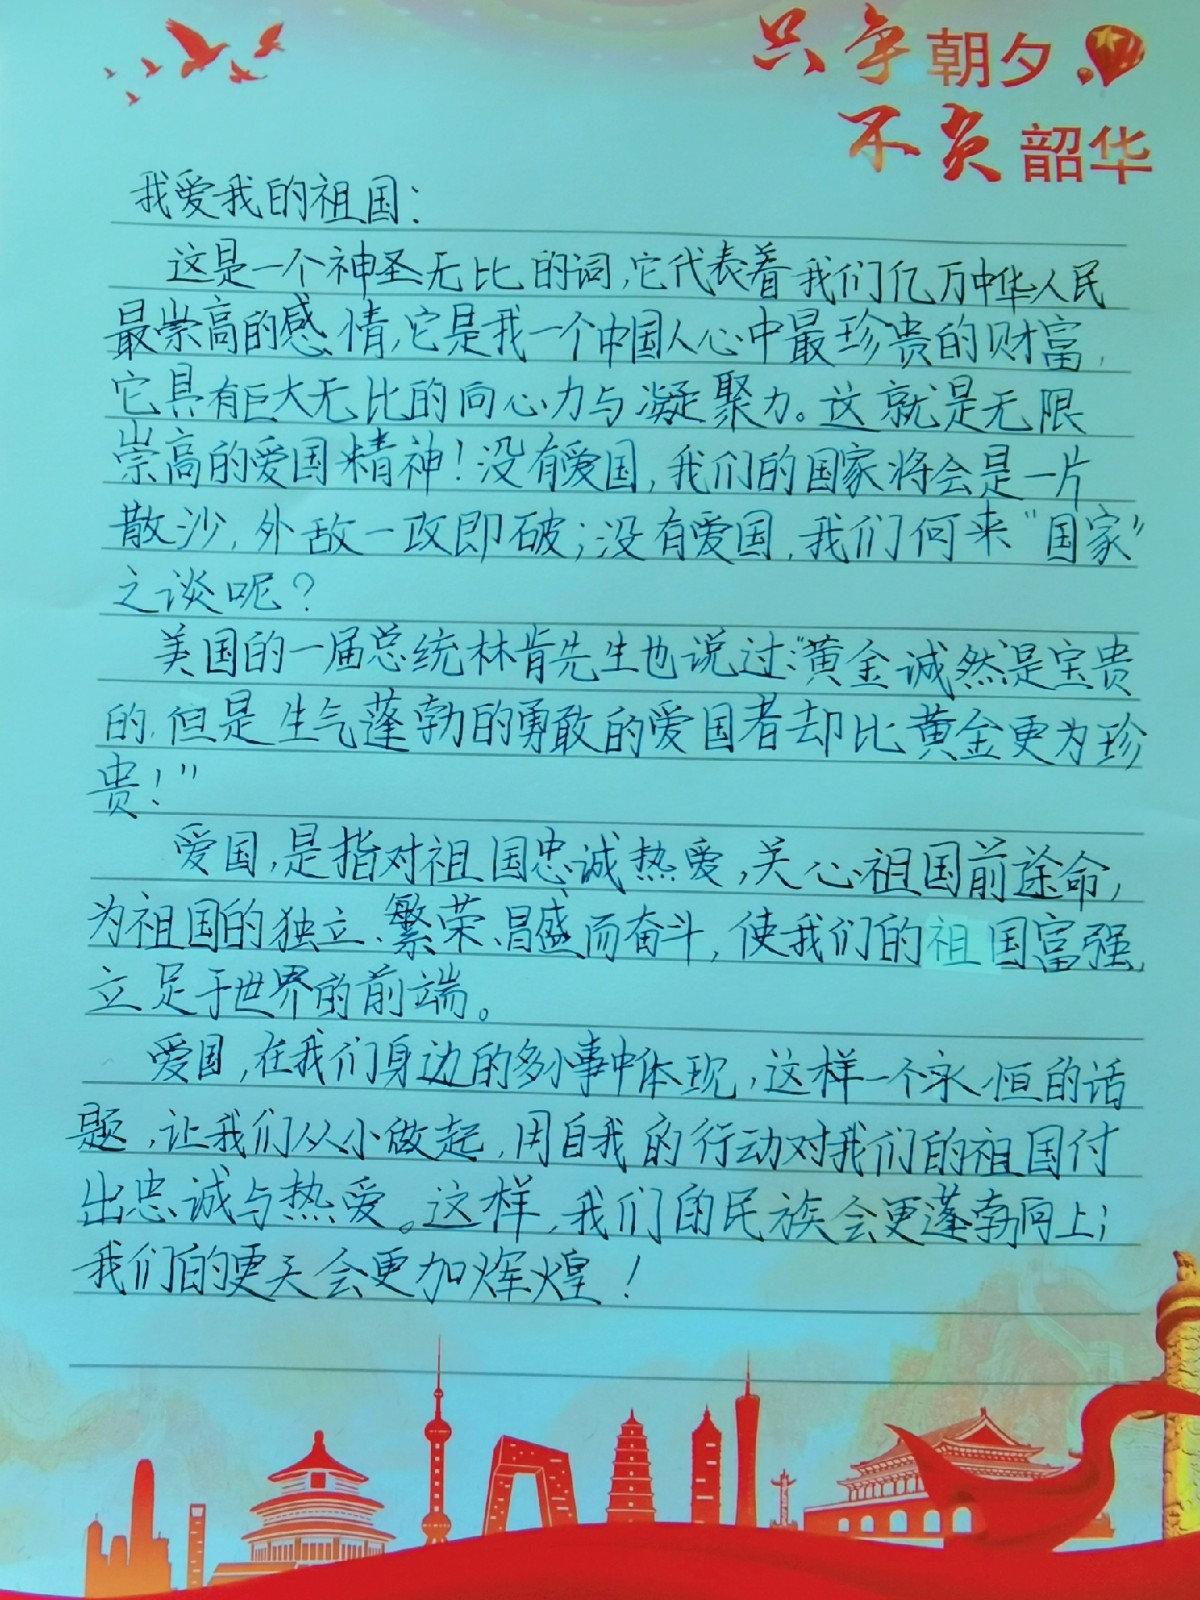 只争朝夕
不负韶华
我爱我的祖国：
这是一个神圣无比的词，它代表着我们亿万中华人民
最崇高的感情，它是我一个中国人心中最珍贵的财富，
它具有巨大无比的向心力与凝聚力。这就是无限
崇高的爱国精神！没有爱国，我们的国家将会是一片
散沙，外敌一攻即破；没有爱国，我们何来“国家”
之谈呢？
美国的一届总统林肯先生也说过：“黄金诚然是宝贵
的，但是生气蓬勃的勇敢的爱国者却比黄金更为珍
贵！”
爱国，是指对祖国忠诚热爱，关心祖国前途命，
为祖国的独立、繁荣、昌盛而奋斗，使我们的祖国富强，
立足于世界的前端。
爱国，在我们身边的多小事中体现，这样一个永恒的话
题，让我们从小做起，用自我的行动对我们的祖国付
出忠诚与热爱。这样，我们的民族会更蓬勃向上；
我们的更天会更加辉煌！